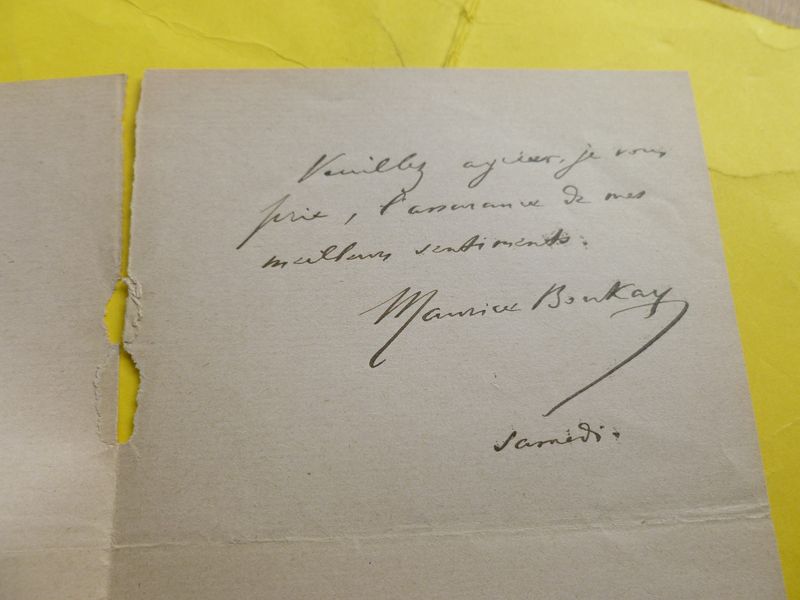 Veuillez agréer, je vous
prie, l'assurance de mes
meilleurs sentiments.
Maurice Boukay
Samedi.